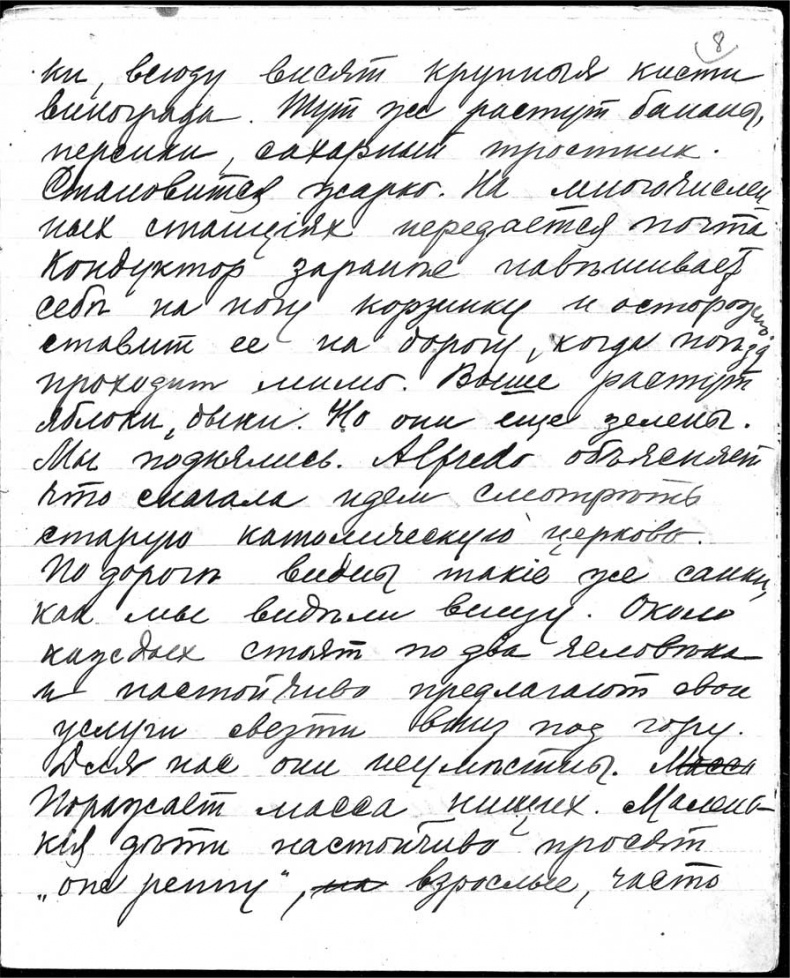 8
ки, всюду висят крупныя кисти
винограда. Тут же растут бананы,
персики, сахарный тростник.
Становится жарко. На многочислен
ных станциях передается почта
Кондуктор заранѣе навѣшивает
себѣ на ногу корзинку и осторожно
ставит ее на дорогу, когда поѣзд
проходит мимо. Выше растут
яблоки, дыни. Но они еще зелены.
Мы поднялись. Alfredo объясняет
что сначала идем смотрѣть
старую католическую церковь.
По дорогѣ видны такіе же санки,
как мы видѣли внизу. Около
каждых стоят по два человѣка
и настойчиво предлагают свои
услуги свезти вниз под гору.
Для нас они неумѣстны. Масса
Поражает масса нищих. Малень-
кія дѣти настойчиво просят
„one penny", на взрослые, часто